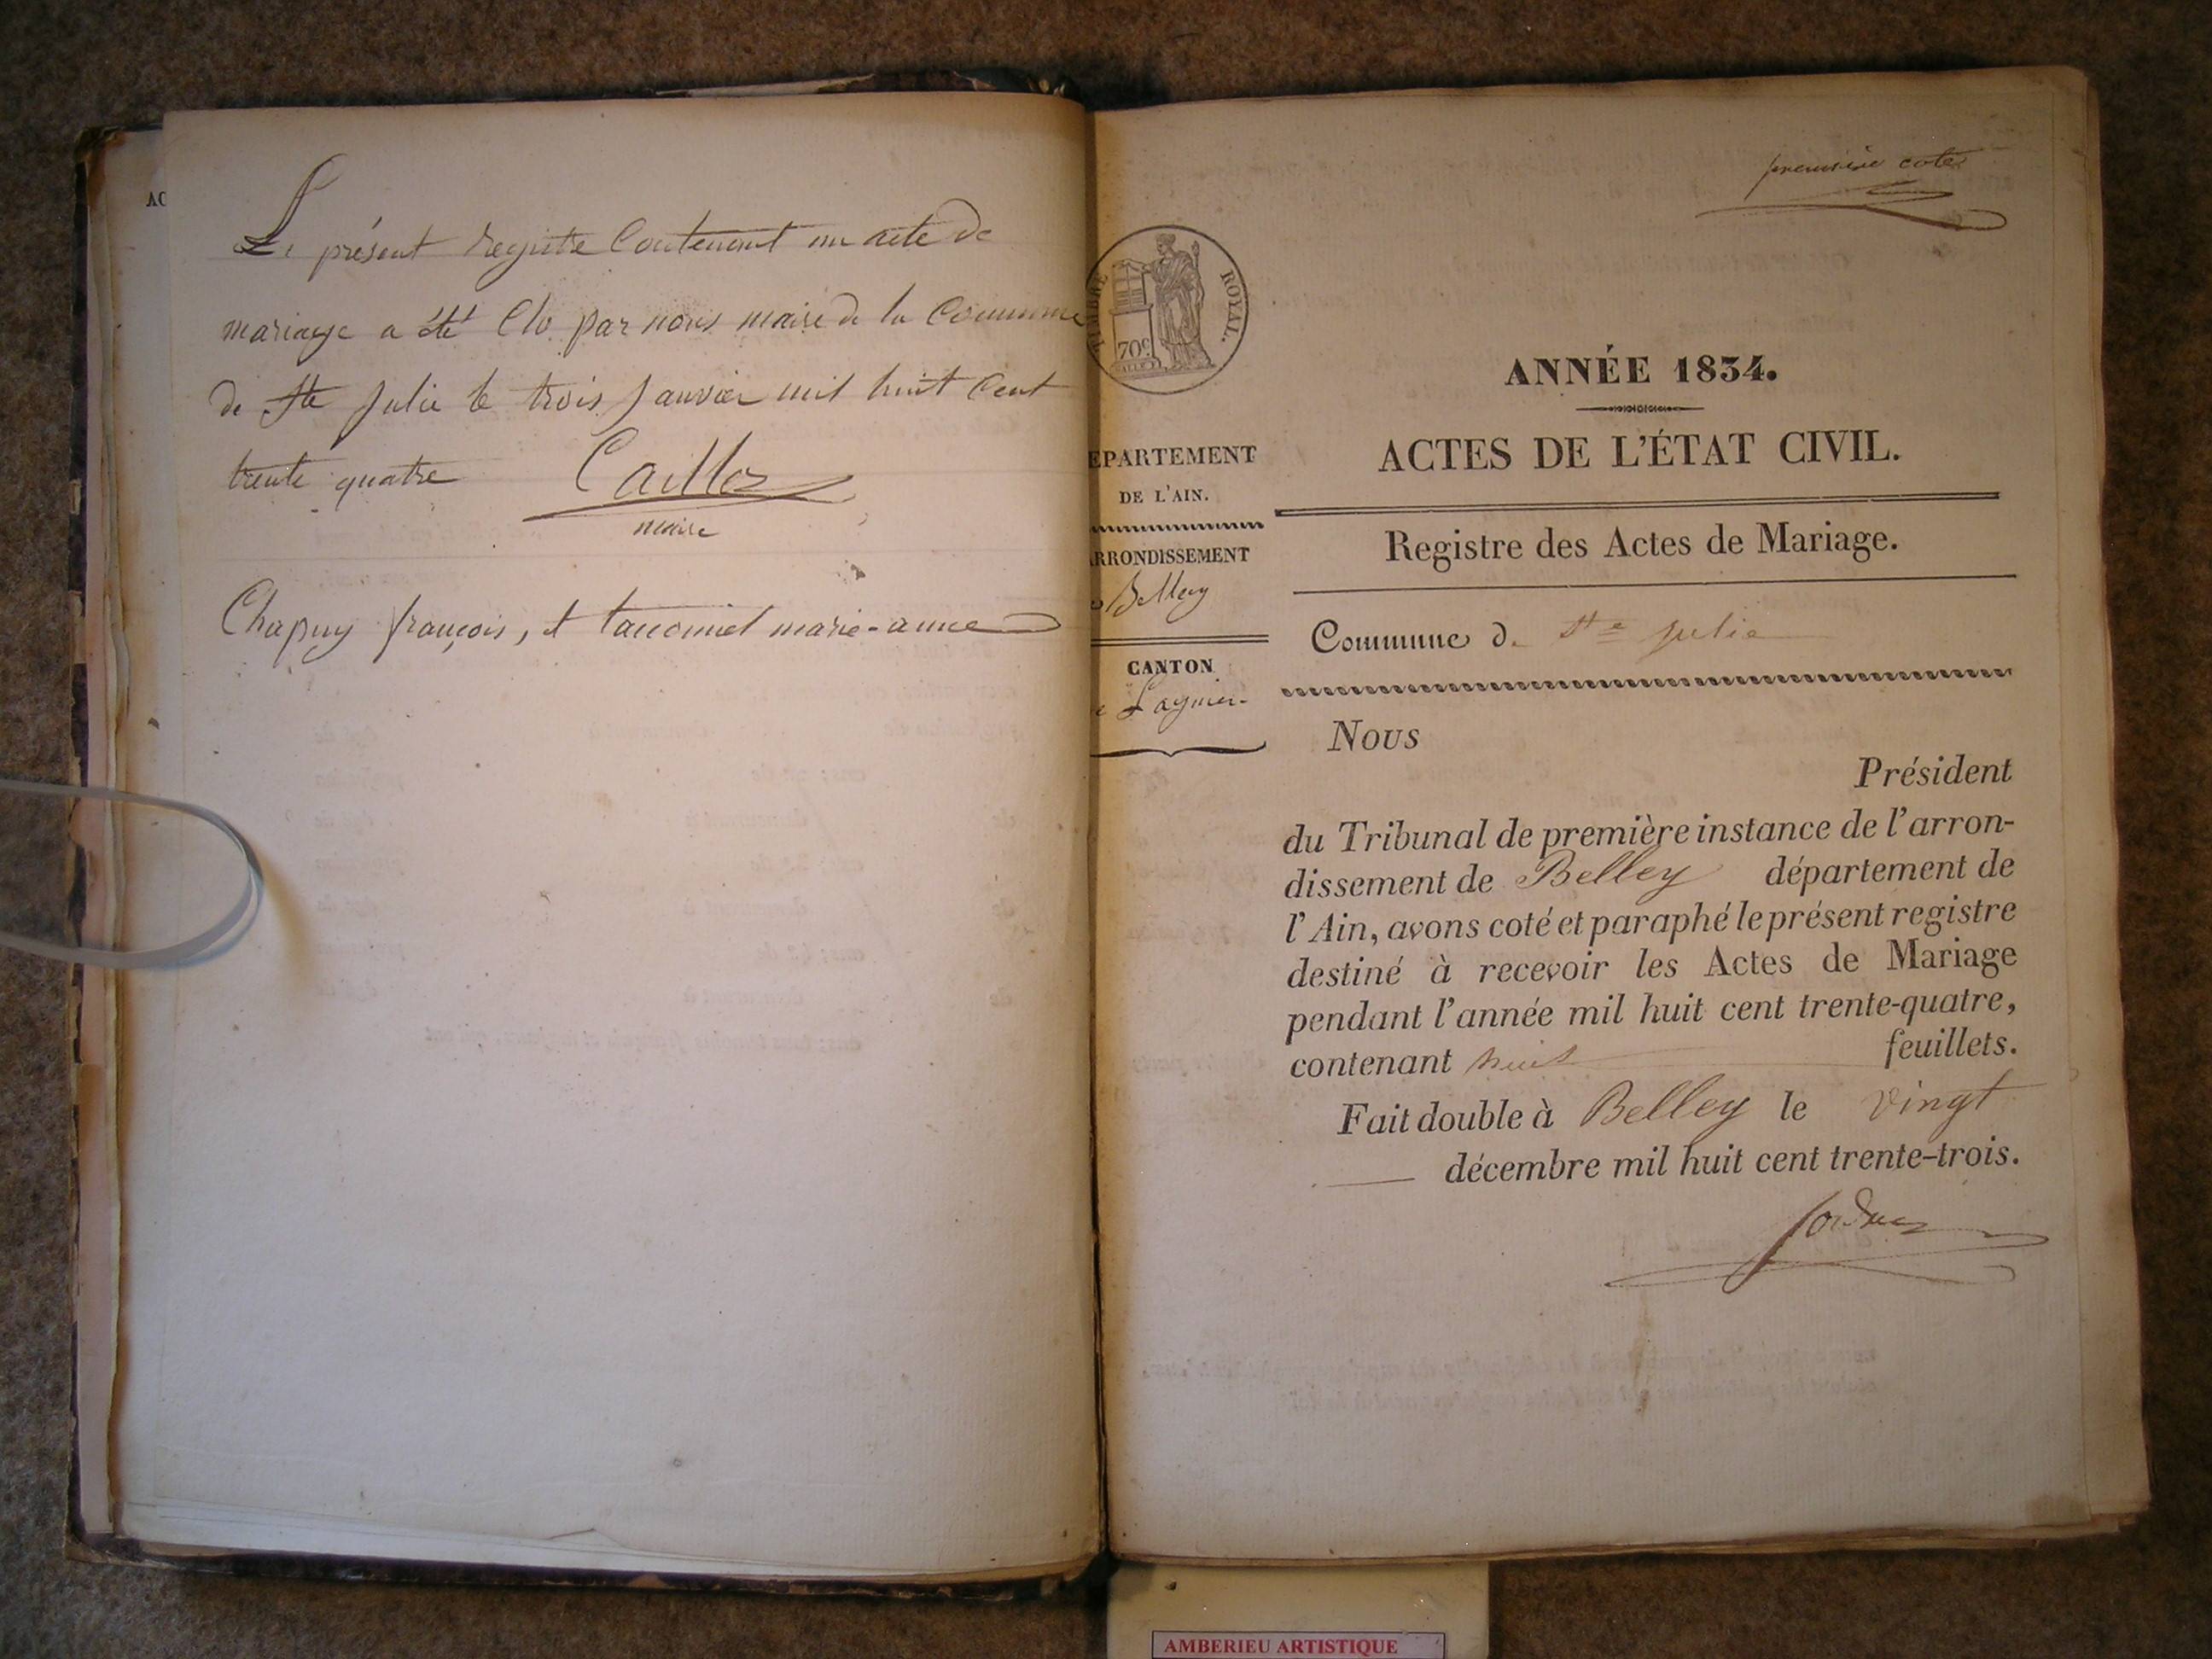 AC
Le présent Registre Contenant un acte de
mariage a été Clo par nous maire de la Commune
de Ste Julie le trois Janvier mil huit Cent
trente quatre Cailloz
maire
Chapuy françois, et marie-anne
première cote
TIMBRE ROYAL.
70c
ANNÉE 1834.
ACTES DE L'ÉTAT CIVIL.
EPARTEMENT
DE L'AIN.
Registre des Actes de Mariage.
RRONDISSEMENT
Belley
Commune de Ste Julie
CANTON
Lagnieu.
Nous
Président
du Tribunal de première instance de l'arron-
dissement de Belley département de
l'Ain, avons coté et paraphé le présent registre
destiné à recevoir les Actes de Mariage
pendant l'année mil huit cent trente-quatre,
contenant huit feuillets.
Fait double à Belley le vingt
décembre mil huit cent trente-trois.
AMBERIEU ARTISTIQUE